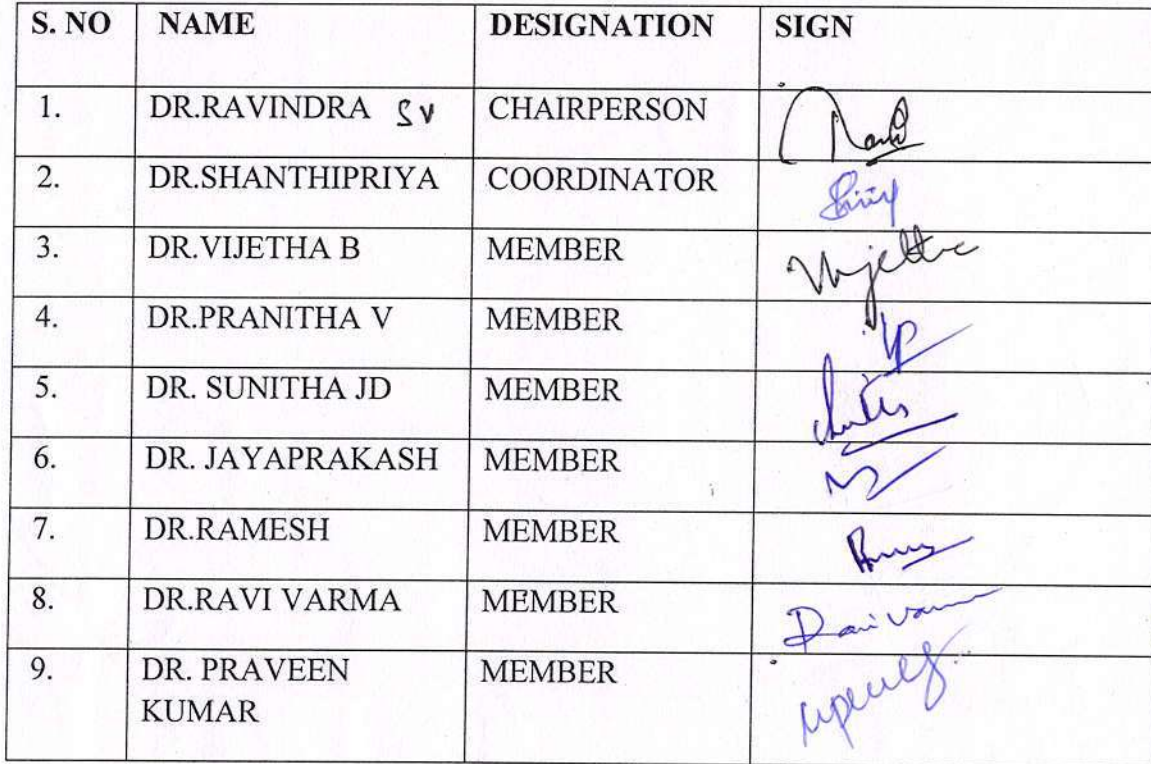 S. NO NAME DESIGNATION SIGN
1. DR.RAVINDRA SV CHAIRPERSON
2. DR.SHANTHIPRIYA COORDINATOR
3. DR.VIJETHA B MEMBER Vijetha
4. DR.PRANITHA V MEMBER
5. DR. SUNITHA JD MEMBER
6. DR. JAYAPRAKASH MEMBER
7. DR.RAMESH MEMBER
8. DR.RAVI VARMA MEMBER
9. DR. PRAVEEN MEMBER
KUMAR